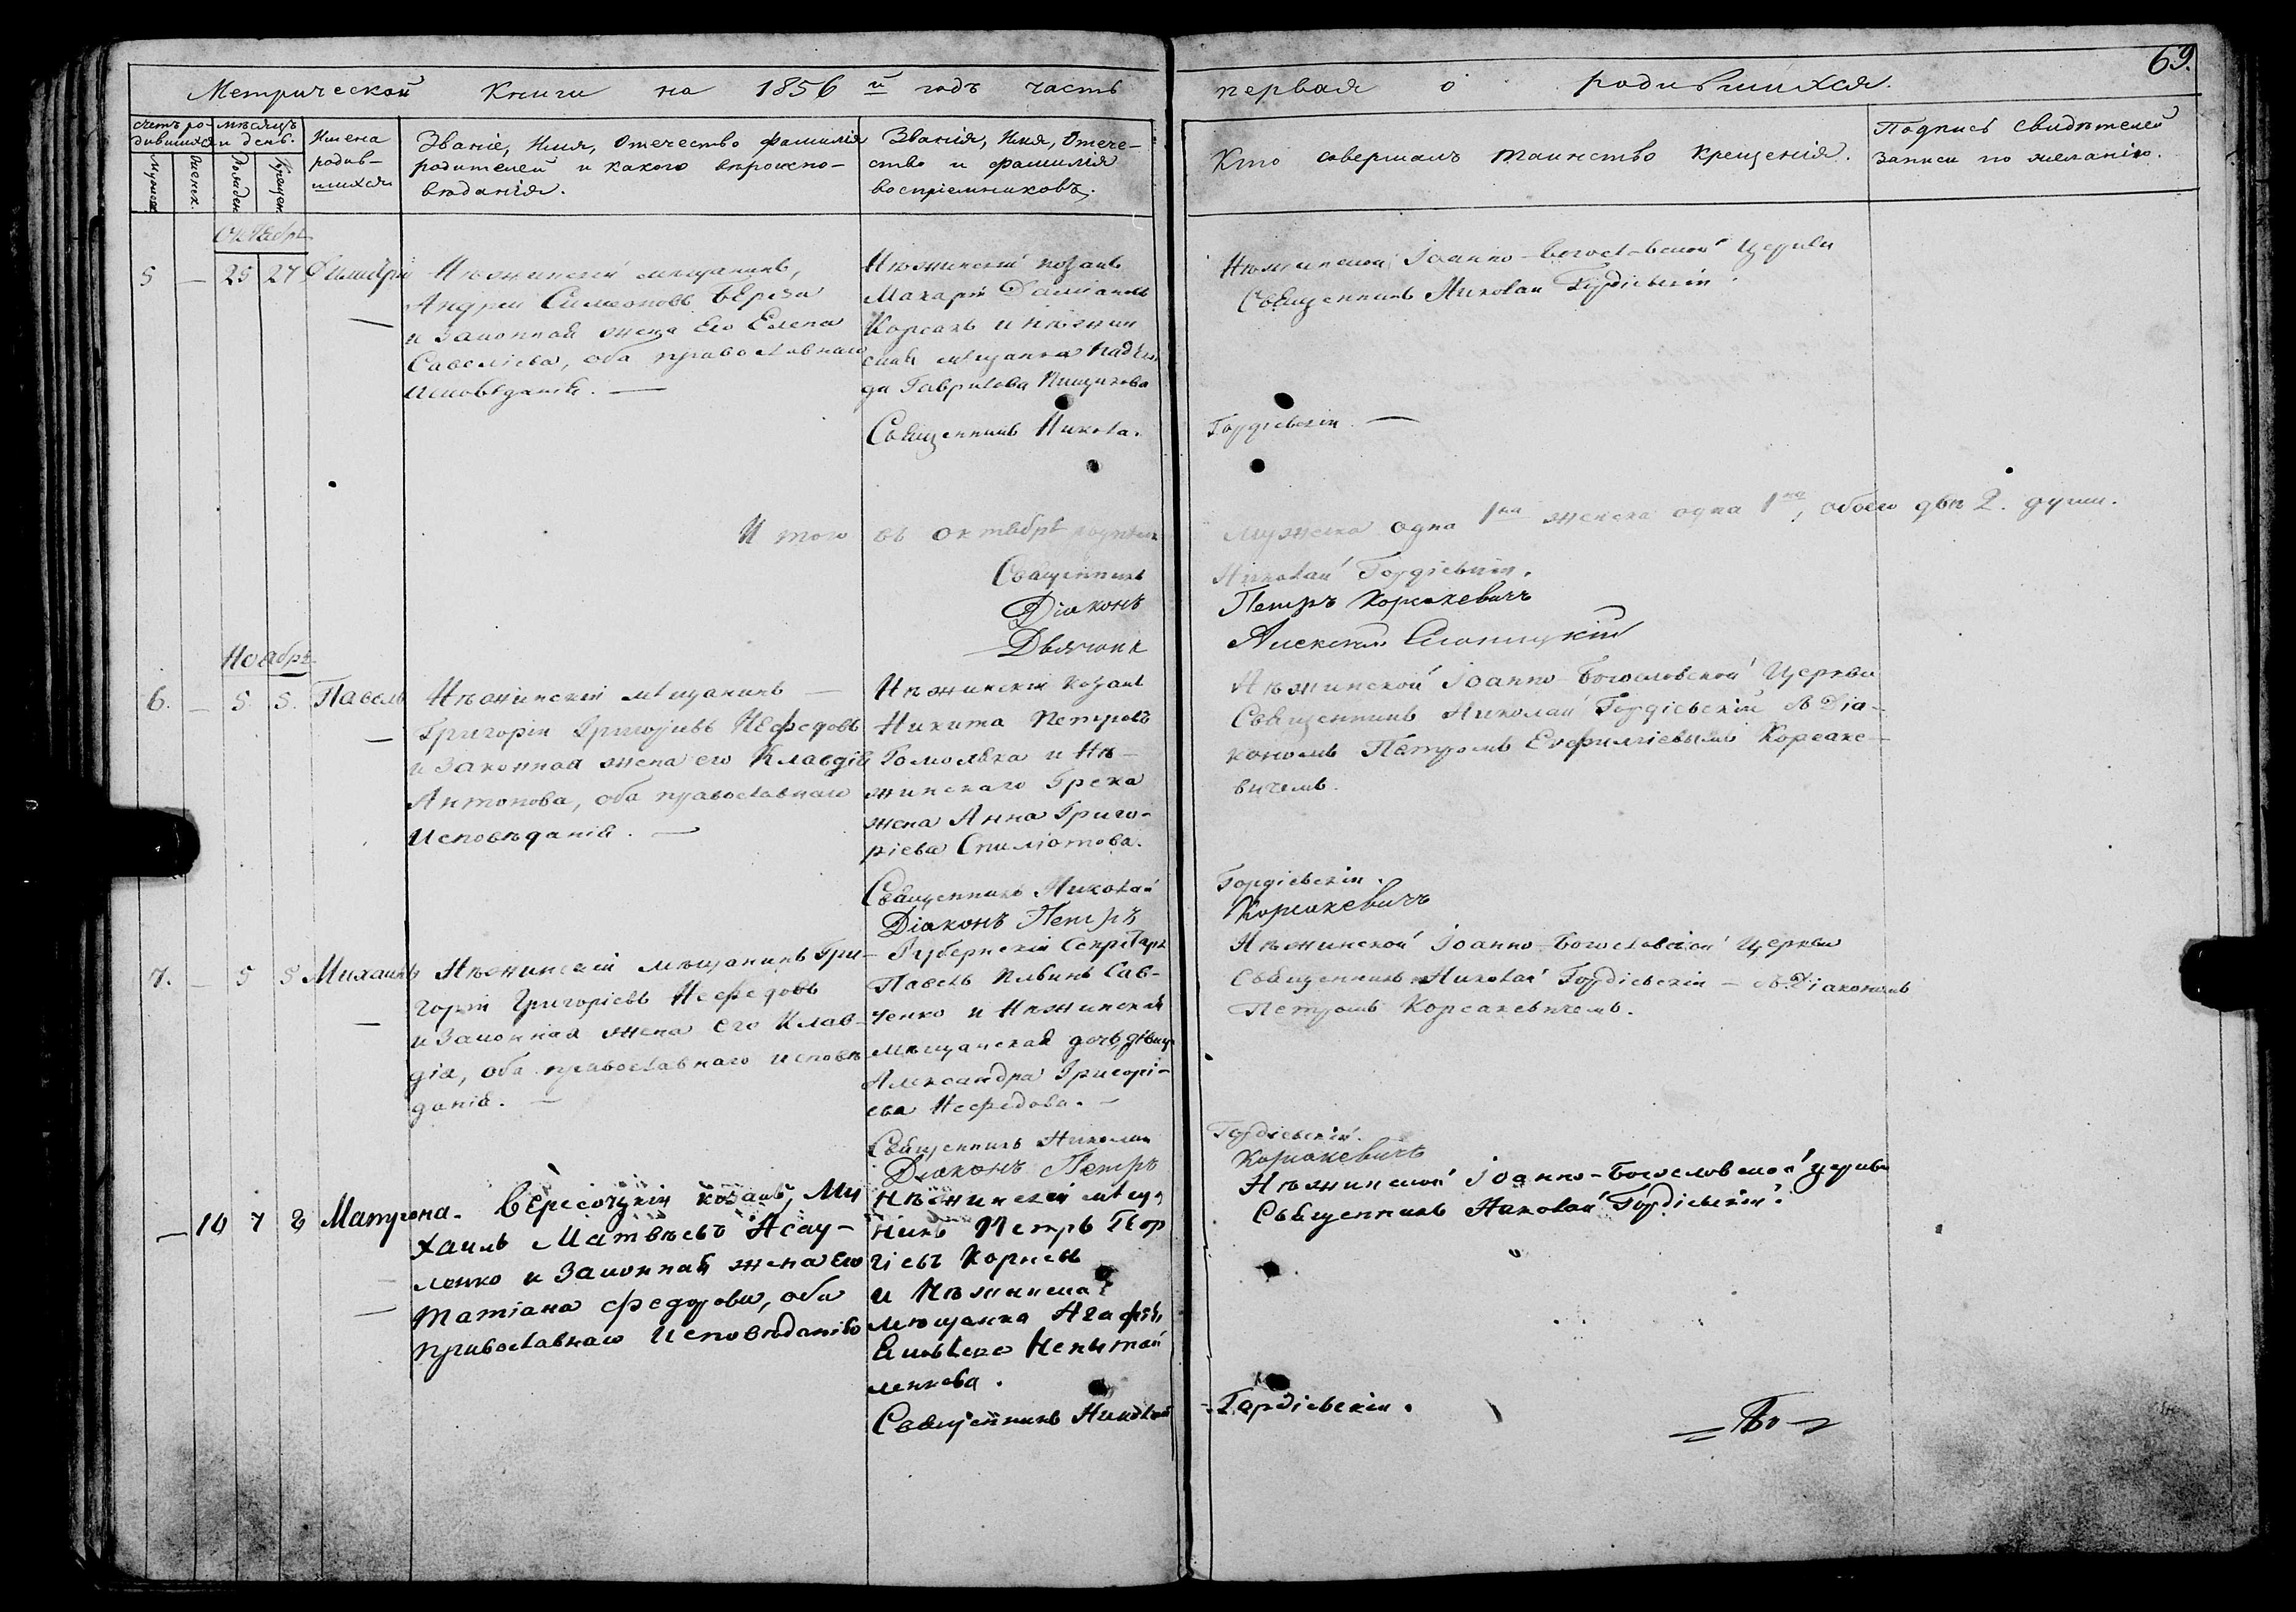 69.
Метрической Книги на 1856 й годъ часть первая о родившихся.
счетъ ро-
дившихся
Мужеск.
Женск.
мѣсяцъ
и день.
Рожден
Крещен
Имена
родив-
шихся
Званіе, Имя, Отечество фамилія
родителей и какого вѣроиспо-
вѣданія.
Званія, Имя, Отече-
ство и фамилія
воспріемниковъ.
Кто совершалъ таинство крещенія.
Подпись свидѣтелей
записи по желанію.
Октябрь
5 — 25 27 Димитрій
Нѣжинскій мещанинъ,
Андрей Симеоновъ Береза
и законная жена его Елена
Савеліева, оба православнаго
исповѣданія. —
Нѣжинскій козакъ
Макарій Даміановъ
Корсакъ и нѣжин
ская мещанка Надеж
да Гаврилова Пищикова
Нѣжинской Іоанно-Богословской Церкви
Священникъ Николай Гордіевскій.
Священникъ Никола. Гордіевскій. —
И того въ октябрѣ мужеска одна 1на женска одна 1на, обоего двѣ 2. души.
Священникъ Николай Гордіевскій.
Діаконъ Петръ Корсакевичъ
Дьячокъ
Ноябрь.
6. — 5. 5. Павелъ
Нѣжинскій мещанинъ —
Григорій Григорьевъ Нефедовъ
и законная жена его Клавдія
Антонова, оба православнаго
исповѣданія. —
Нѣжинскій козакъ
Никита Петровъ
Гомоляка и Нѣ-
жинскаго Грека
жена Анна Григо-
ріева Спиліотова.
Нѣжинской Іоанно-Богословской Церкви
Священникъ Николай Гордіевскій съ Діа-
кономъ Петромъ Евфиміевымъ Корсаке-
вичемъ.
Священникъ Николай Гордіевскій.
Діаконъ Петръ Корсакевичъ
7. — 5 5 Михаилъ
Нѣжинскій мѣщанинъ Гри-
горій Григоріевъ Нефедовъ
и законная жена его Клав-
дія, оба православнаго исповѣ-
данія. —
Губернскій Секретарь
Павелъ Ильинъ Сав-
ченко и Нѣжинская
мѣщанская дочь, дѣвица
Александра Григорі-
ева Нефедова. —
Нѣжинской Іоанно-Богословской Церкви
Священникъ Николай Гордіевскій — съ Діакономъ
Петромъ Корсакевичемъ.
Священникъ Николай Гордіевскій.
Діаконъ Петръ Корсакевичъ
— 10 7 8 Матрона.
Вересоцкій козакъ, Ми
хаилъ Матвѣевъ Асау-
ленко и законная жена его
татіана федорова, оба
православнаго исповѣданія
Нѣжинскій мѣща
нинъ Петръ Геор
гіевъ Корнев
и Нѣжинская
мѣщанка Агафія
ленкова.
Нѣжинской Іоанно-Богословской церкви
Священникъ Николай Гордіевскій.
Священникъ Николай Гордіевскій.